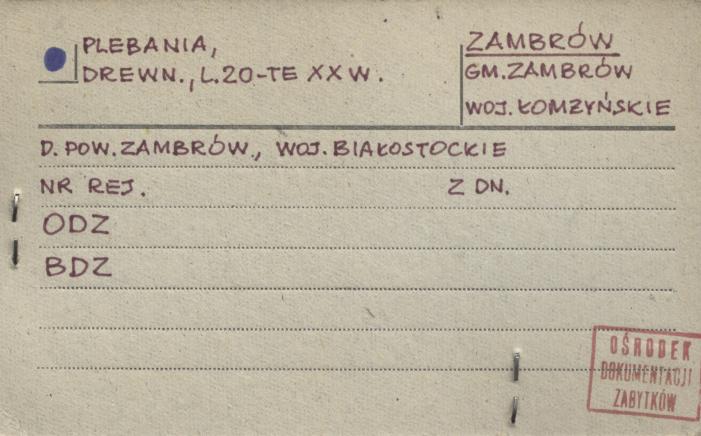 PLEBANIA,
DREWN., L.20-TE XX W.
ZAMBRÓW
GM.ZAMBRÓW
WOJ.ŁOMŻYŃSKIE
D. POW. ZAMBRÓW., WOJ. BIAŁOSTOCKIE
NR REJ. Z DN.
ODZ
BDZ
OŚRODEK
DOKUMENTACJI
ZABYTKÓW